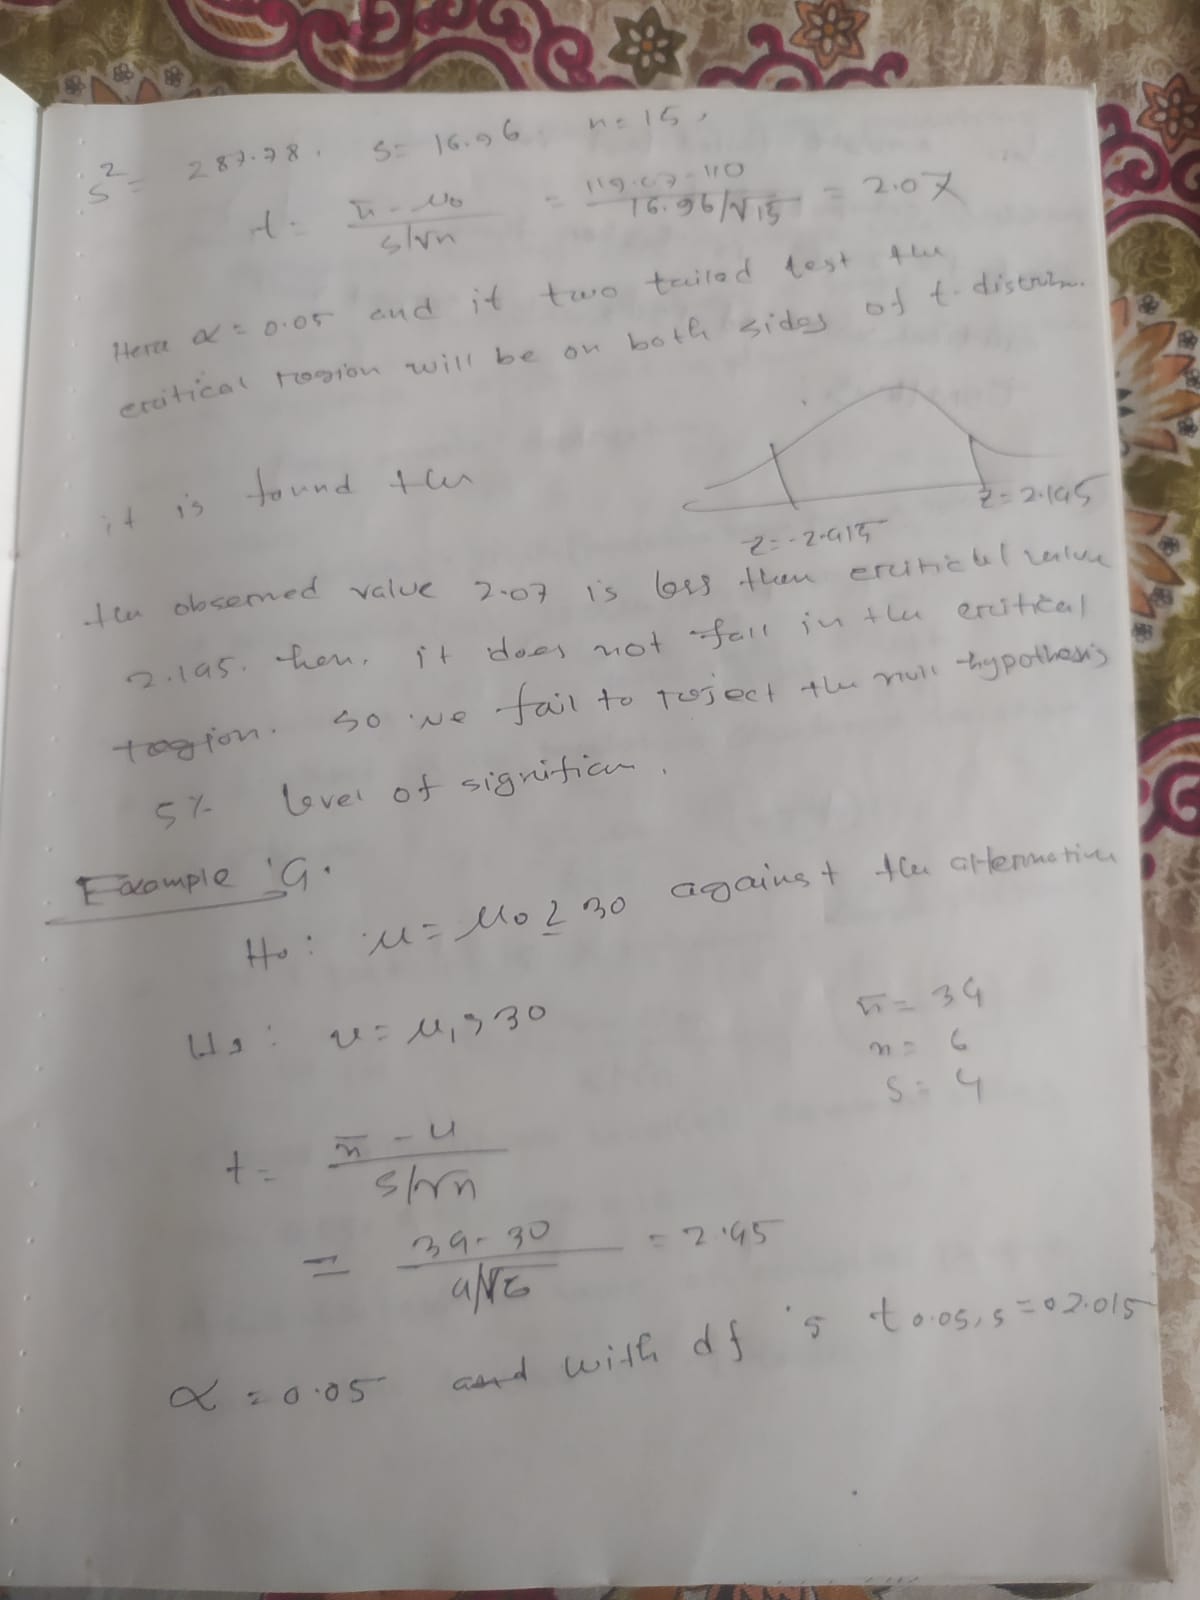 s² = 287.78. s = 16.96. n = 15,
t = x̄ - μ₀ / s/√n = 119.07-110 / 16.96/√15 = 2.07
Here α = 0.05 and it two tailed test the
critical region will be on both sides of t. distribn.
it is found the
z = 2.145
z = -2.415
the observed value 2.07 is less then critical value
2.145. then, it does not fall in the critical
region. so we fail to reject the null hypothesis
5% level of significan.
Example 4.
H₀: μ = μ₀ ≥ 30 against the alternative
μ = μ₁ > 30
x̄ = 34
n = 6
s = 4
t = x̄ - μ / s/√n
= 34 - 30 / 4/√6 = 2.45
α = 0.05 and with df 5 t 0.05, 5 = 2.015